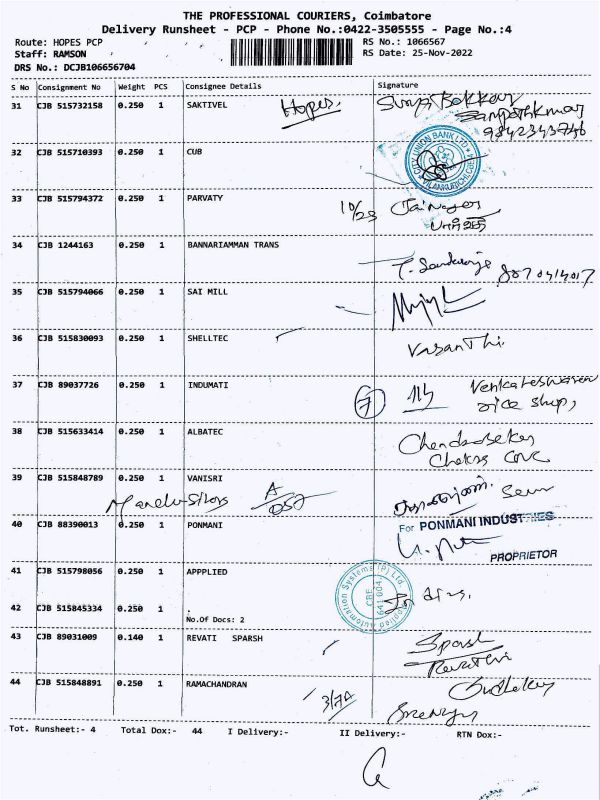 THE PROFESSIONAL COURIERS, Coimbatore
Delivery Runsheet - PCP - Phone No.:0422-3505555 - Page No.:4
Route: HOPES PCP
RS No.: 1066567
Staff: RAMSON
RS Date: 25-Nov-2022
DRS No.: DCJB106656704
S No Consignment No Weight PCS Consignee Details Signature
31 CJB 515732158 0.250 1 SAKTIVEL Hopes.
9842343746
32 CJB 515710393 0.250 1 CUB
CITY UNION BANK LTD
33 CJB 515794372 0.250 1 PARVATY
10/23 Jai Nagar
34 CJB 1244163 0.250 1 BANNARIAMMAN TRANS
35 CJB 515794066 0.250 1 SAI MILL
36 CJB 515830093 0.250 1 SHELLTEC
VasanThi
37 CJB 89037726 0.250 1 INDUMATI
7 114 Venkateswaren
rice shop,
38 CJB 515633414 0.250 1 ALBATEC
Chandrasekar
39 CJB 515848789 0.250 1 VANISRI
40 CJB 88390013 0.250 1 PONMANI
For PONMANI INDUSTRIES
PROPRIETOR
41 CJB 515798056 0.250 1 APPPLIED
Applied Automation Systems (P) Ltd.
CBE
641604
42 CJB 515845334 0.250 1 .
No.Of Docs: 2
43 CJB 89031009 0.140 1 REVATI SPARSH
Sparsh
Revathi
44 CJB 515848891 0.250 1 RAMACHANDRAN
Tot. Runsheet:- 4 Total Dox:- 44 I Delivery:- II Delivery:- RTN Dox:-